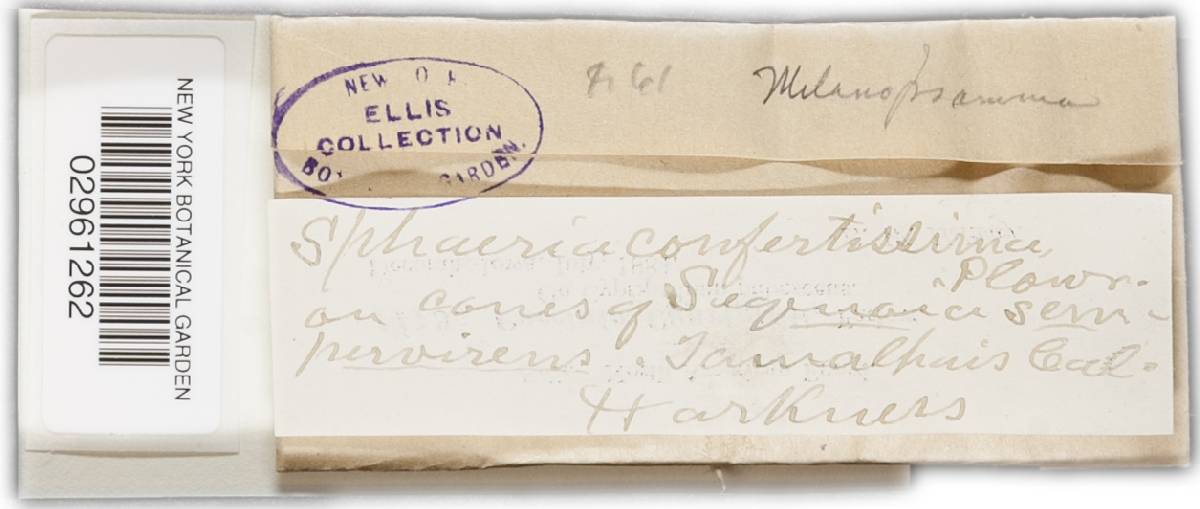 NEW YORK BOTANICAL GARDEN
02961262
NEW
ELLIS
COLLECTION
GARDEN.
61
Melanopsamma
Sphaeria confertissima,
Plowr.
on cones of Sequoia sem-
pervirens. Tamalpais Cal.
Harkness